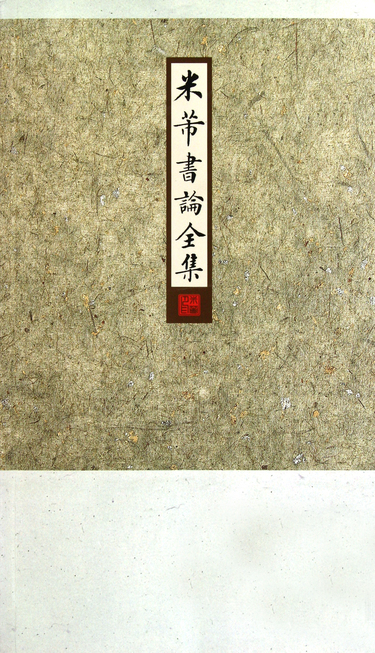 米芾書論全集